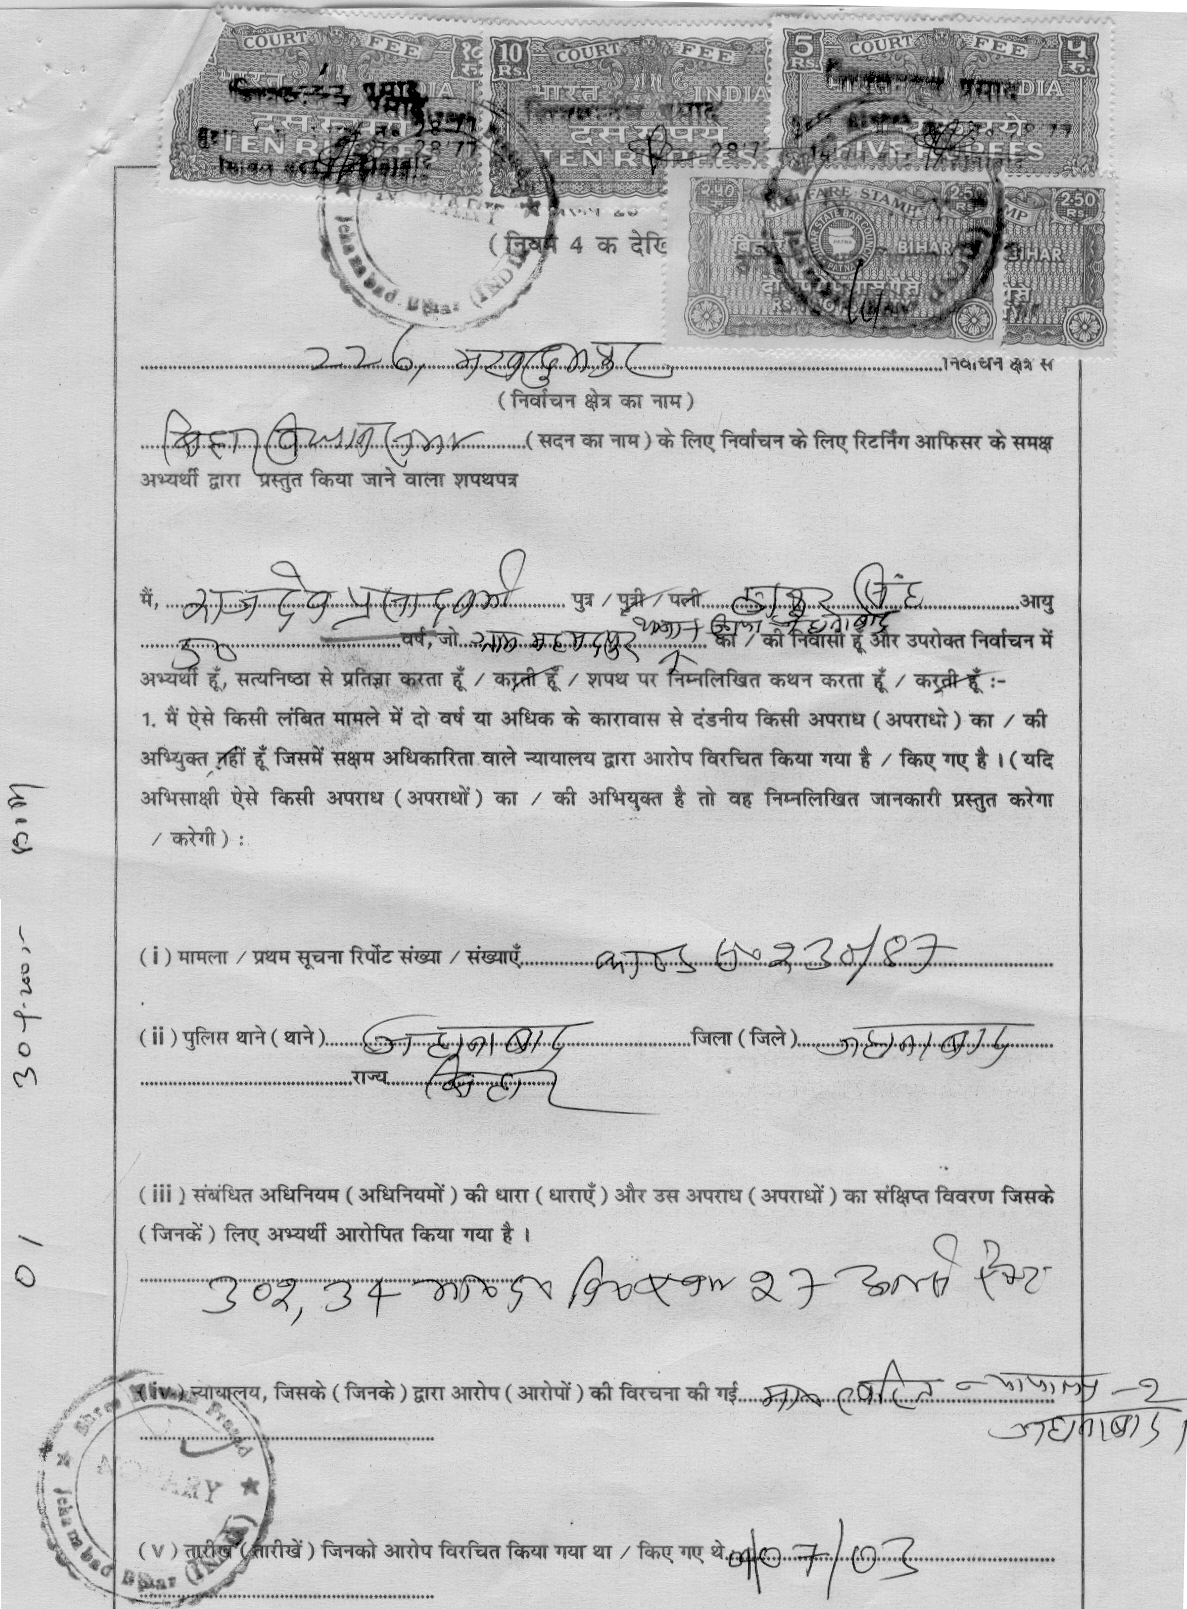 COURT FEE १० रु.
भारत INDIA
दस रूपये
TEN RUPEES
10 RS. COURT FEE
भारत INDIA
दस रूपये
TEN RUPEES
5 RS. COURT FEE ५ रु.
भारत INDIA
FIVE RUPEES
WELFARE STAMP 2.50
BIHAR
2.50 RS
BIHAR
NOTARY
Jehanabad Bihar (INDIA)
(नियम 4 क देखि
226, मखदुमपुर निर्वाचन क्षेत्र से
(निर्वाचन क्षेत्र का नाम)
बिहार विधान सभा (सदन का नाम) के लिए निर्वाचन के लिए रिटर्निंग आफिसर के समक्ष
अभ्यर्थी द्वारा प्रस्तुत किया जाने वाला शपथपत्र
मैं, राजदेव प्रसाद वर्मा पुत्र / पुत्री / पत्नी ठाकुर सिंह आयु
वर्ष, जो ग्राम महमदपुर थाना जिला जहानाबाद का / की निवासी हूँ और उपरोक्त निर्वाचन में
अभ्यर्थी हूँ, सत्यनिष्ठा से प्रतिज्ञा करता हूँ / करती हूँ / शपथ पर निम्नलिखित कथन करता हूँ / करती हूँ :-
1. मैं ऐसे किसी लंबित मामले में दो वर्ष या अधिक के कारावास से दंडनीय किसी अपराध (अपराधो) का / की
अभियुक्त नहीं हूँ जिसमें सक्षम अधिकारिता वाले न्यायालय द्वारा आरोप विरचित किया गया है / किए गए है । (यदि
अभिसाक्षी ऐसे किसी अपराध (अपराधों) का / की अभियुक्त है तो वह निम्नलिखित जानकारी प्रस्तुत करेगा
/ करेगी) :
(i) मामला / प्रथम सूचना रिर्पोट संख्या / संख्याएँ काण्ड सं० 230/87
(ii) पुलिस थाने (थाने) जहानाबाद जिला (जिले) जहानाबाद
राज्य बिहार
(iii) संबंधित अधिनियम (अधिनियमों) की धारा (धाराएँ) और उस अपराध (अपराधों) का संक्षिप्त विवरण जिसके
(जिनकें) लिए अभ्यर्थी आरोपित किया गया है ।
302, 34 भा०द०वि० एवं 27 आर्म्स ऐक्ट
(iv) न्यायालय, जिसके (जिनके) द्वारा आरोप (आरोपों) की विरचना की गई त्वरित न्यायालय -2
जहानाबाद।
Shree Niwas Prasad
NOTARY
Jehanabad Bihar (INDIA)
(v) तारीख (तारीखें) जिनको आरोप विरचित किया गया था / किए गए थे /07/03